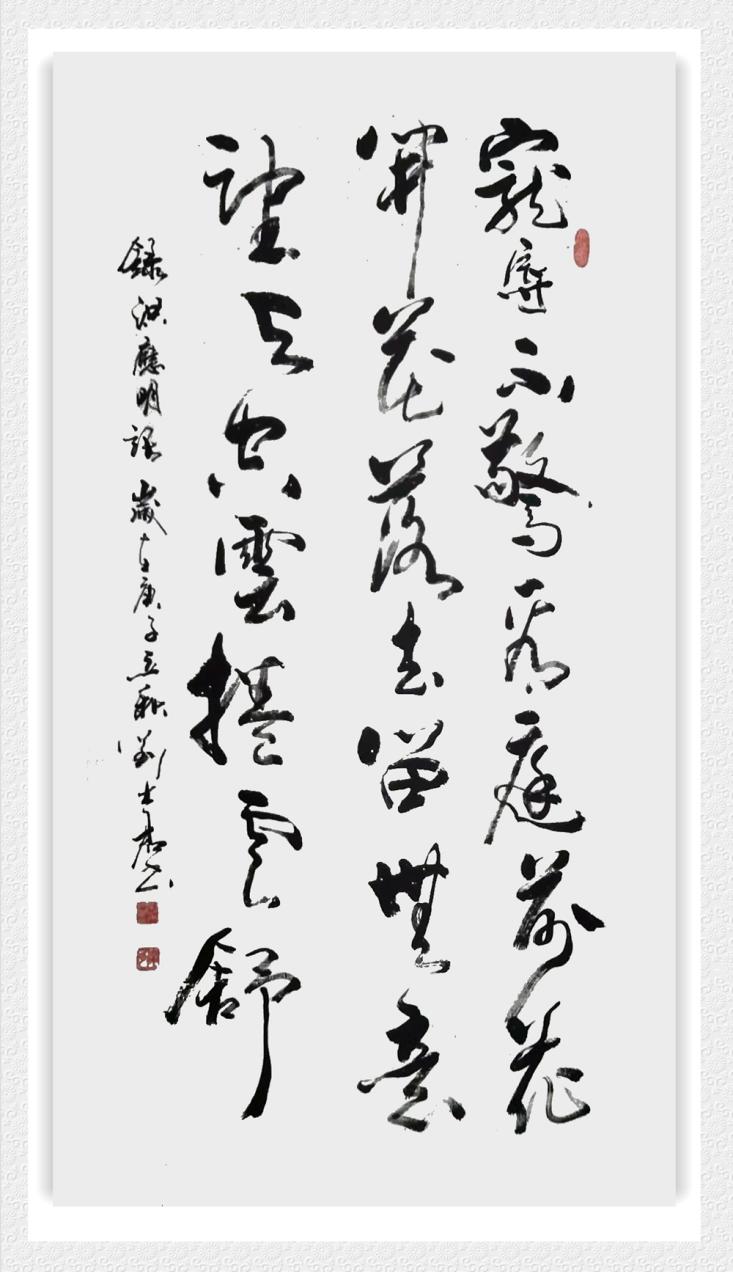 寵辱不驚看庭前花
開花落去留無意
望天空雲捲雲舒
錄洪應明語歲在庚子立秋劉士